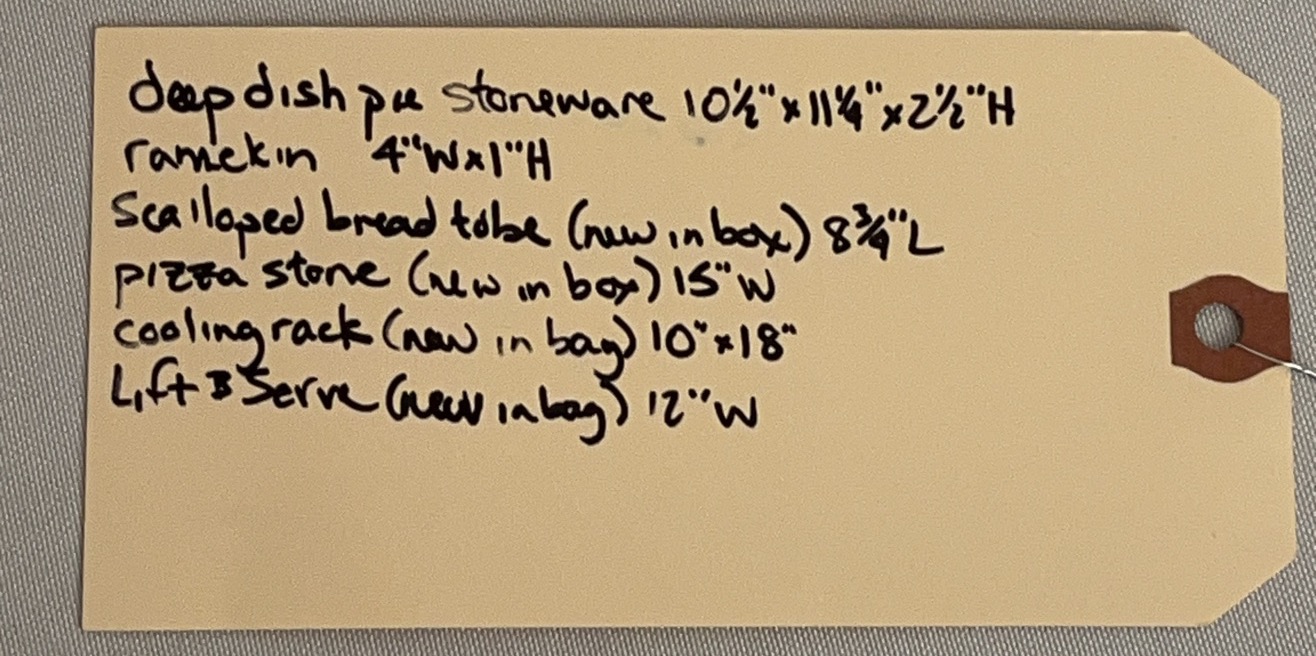 deep dish pie stoneware 10½" x 11¼" x 2½" H
ramekin 4" W x 1" H
Scalloped bread tube (new in box) 8¾" L
pizza stone (new in box) 15" W
cooling rack (new in bag) 10" x 18"
Lift & Serve (new in bag) 12" W